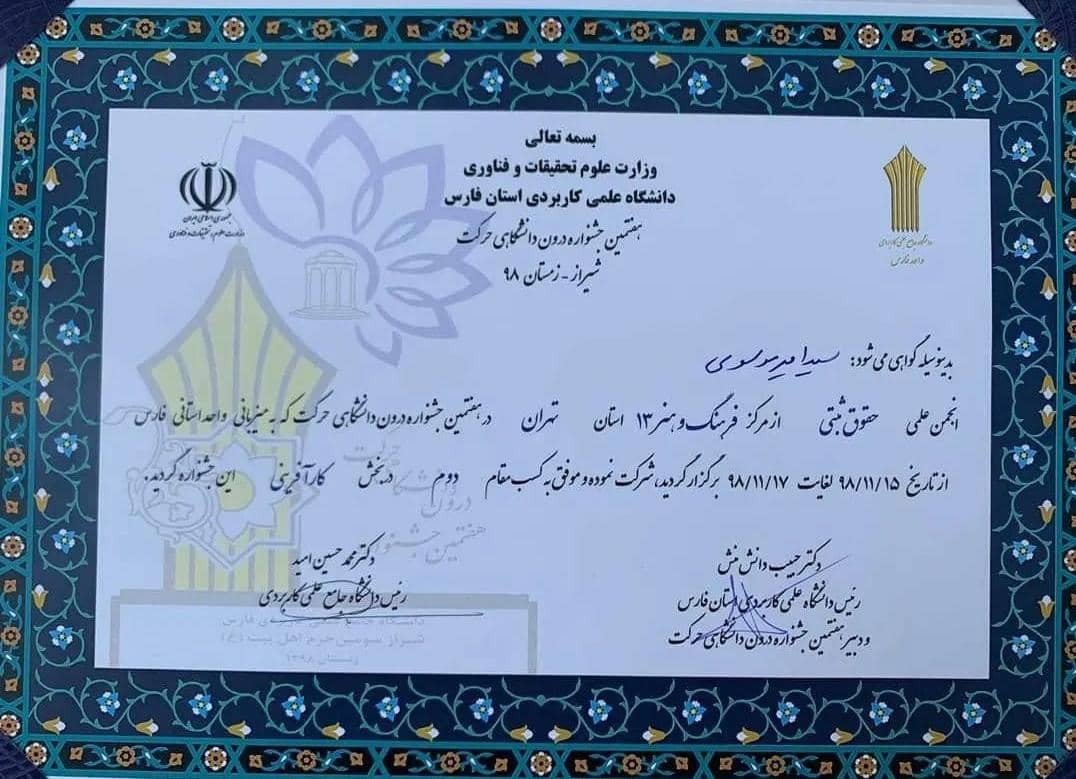 بسمه تعالی
وزارت علوم تحقیقات و فناوری
دانشگاه علمی کاربردی استان فارس
هفتمین جشنواره درون دانشگاهی حرکت
شیراز - زمستان ۹۸
جمهوری اسلامی ایران
وزارت علوم، تحقیقات و فناوری
دانشگاه جامع علمی کاربردی
واحد فارس
بدینوسیله گواهی می شود: سید امیر موسوی
انجمن علمی حقوق ثبتی از مرکز فرهنگ و هنر ۱۳ استان تهران در هفتمین جشنواره درون دانشگاهی حرکت که به میزبانی واحد استانی فارس
از تاریخ ۹۸/۱۱/۱۵ لغایت ۹۸/۱۱/۱۷ برگزار گردید، شرکت نموده و موفق به کسب مقام دوم در بخش کارآفرینی این جشنواره گردید.
دکتر حبیب دانش منش
رئیس دانشگاه علمی کاربردی استان فارس
و دبیر هفتمین جشنواره درون دانشگاهی حرکت
دکتر محمد حسین امید
رئیس دانشگاه جامع علمی کاربردی
حرکت
درون دانشگاهی
هفتمین جشنواره
دانشگاه جامع علمی کاربردی فارس
شیراز سومین حرم اهل بیت (ع)
زمستان ۱۳۹۸